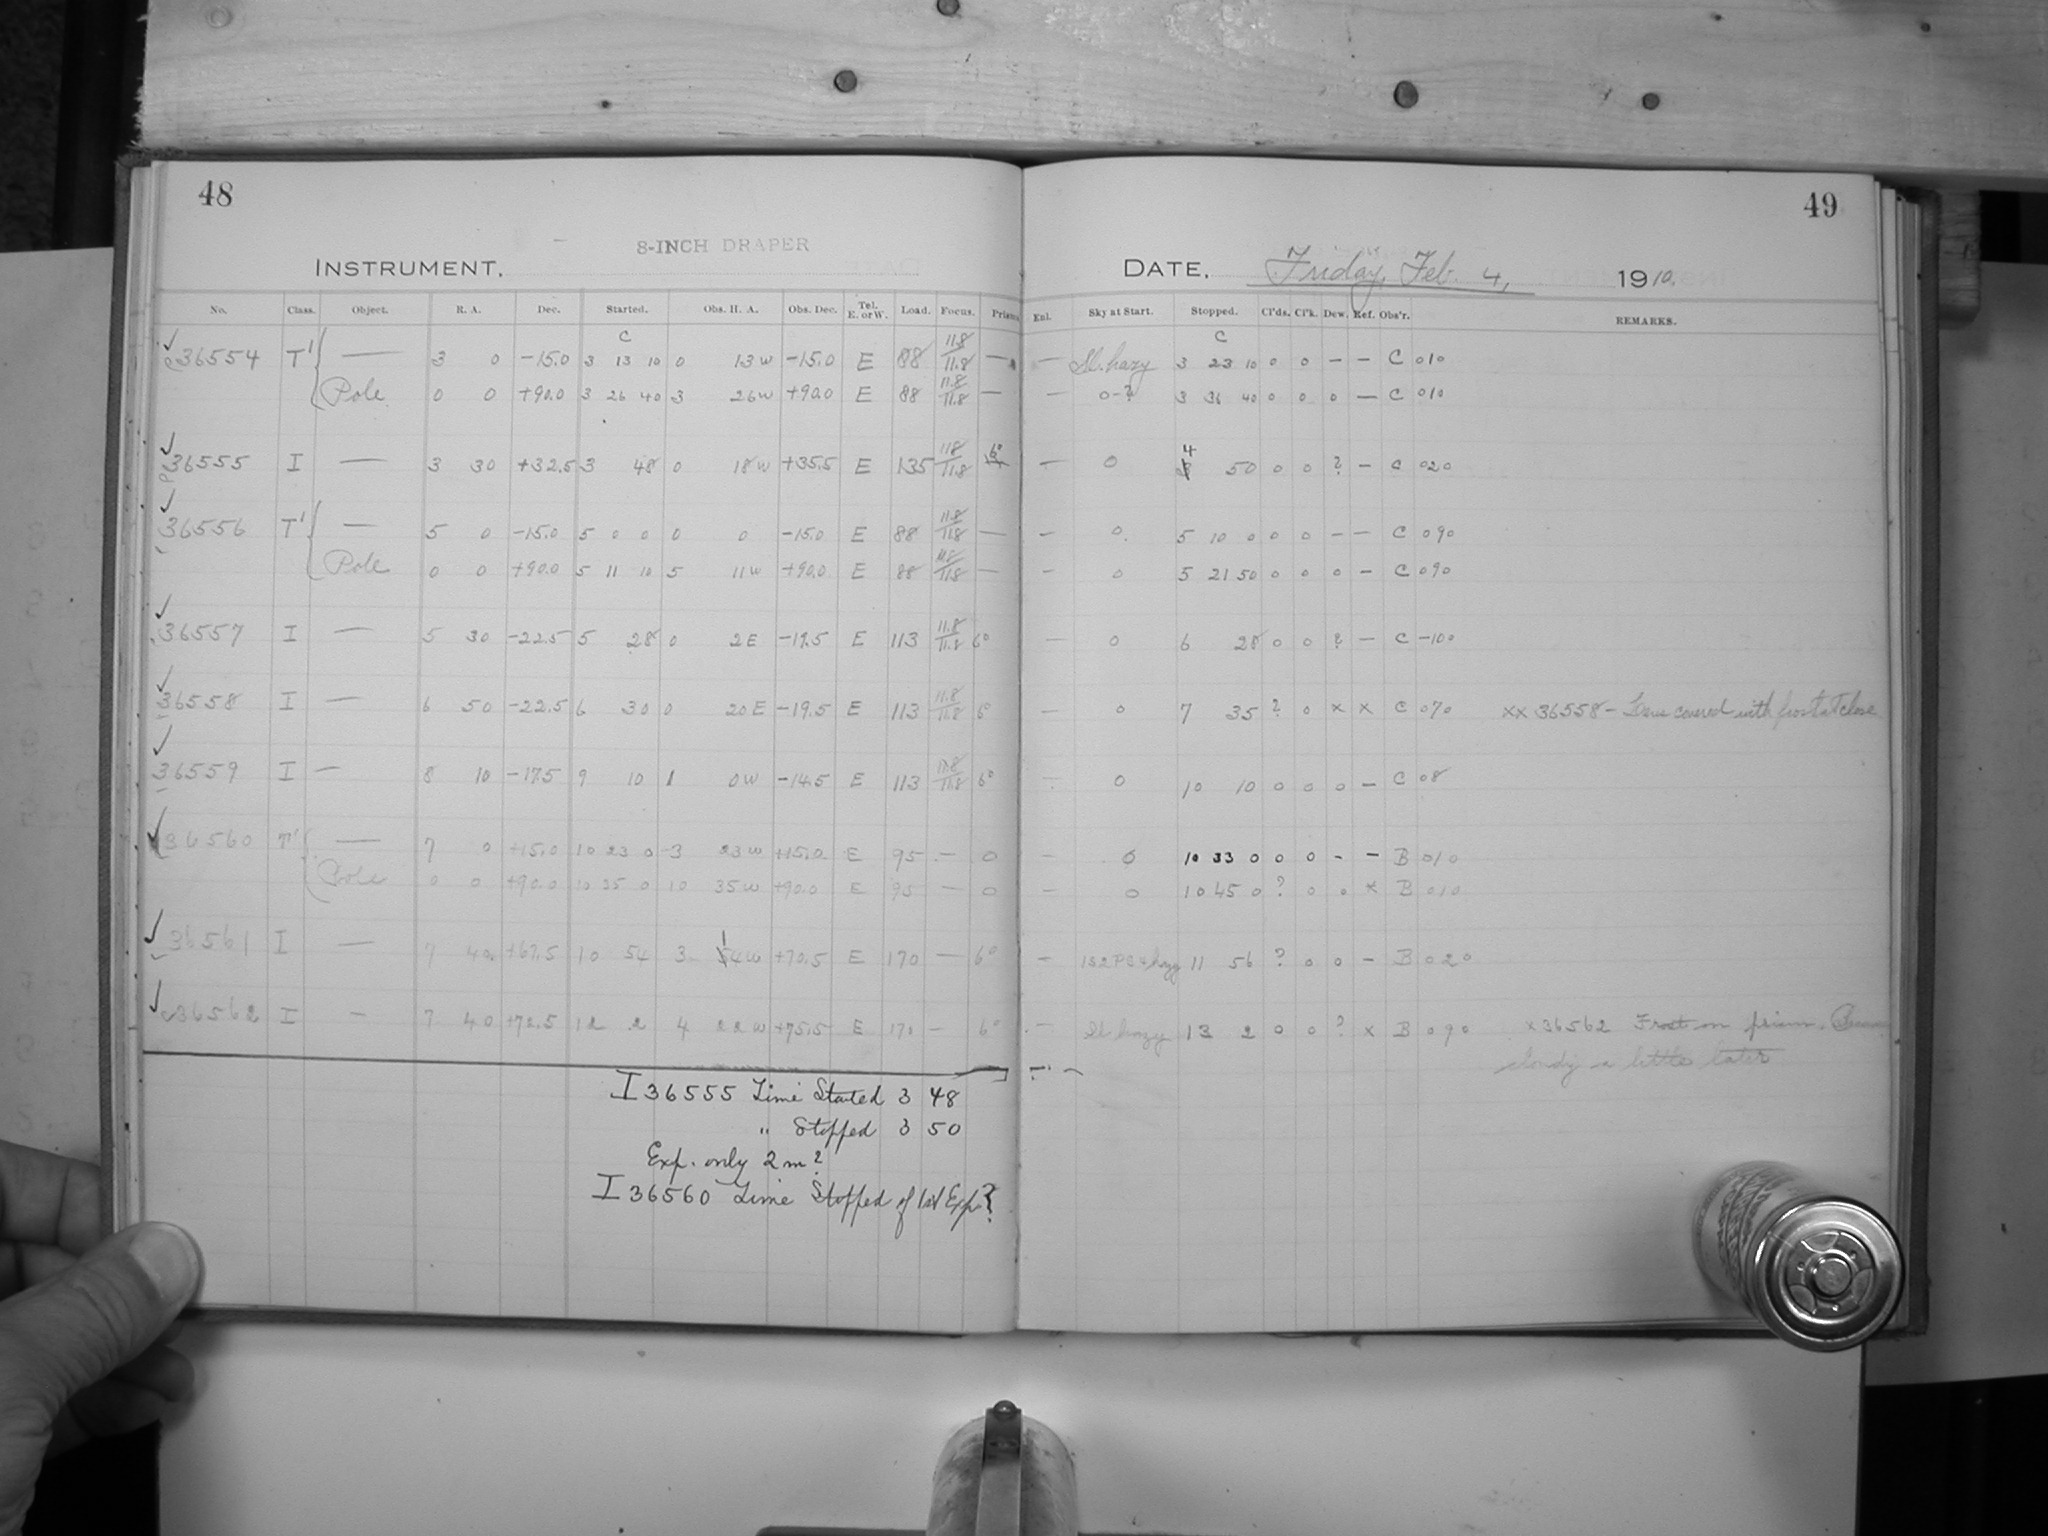 48
8-INCH DRAPER
INSTRUMENT.
No. Class. Object. R. A. Dec. Started. Obs. H. A. Obs. Dec. Tel. E. or W. Load. Focus. Prism
C
36554 T' — 3 0 -15.0 3 13 10 0 13 W -15.0 E 88 11.8/11.8 —
Pole 0 0 +90.0 3 26 40 3 26 W +90.0 E 88 11.8/11.8 —
36555 I — 3 30 +32.5 3 48 0 18 W +35.5 E 135 11.8/11.8 6°
36556 T' — 5 0 -15.0 5 0 0 0 0 -15.0 E 88 11.8/11.8 —
Pole 0 0 +90.0 5 11 10 5 11 W +90.0 E 88 11.8/11.8 —
36557 I — 5 30 -22.5 5 28 0 2 E -19.5 E 113 11.8/11.8 6°
36558 I — 6 50 -22.5 6 30 0 20 E -19.5 E 113 11.8/11.8 6°
36559 I — 8 10 -17.5 9 10 1 0 W -14.5 E 113 11.8/11.8 6°
36560 T' — 7 0 +15.0 10 23 0 3 23 W +15.0 E 95 — 0
Pole 0 0 +90.0 10 35 0 10 35 W +90.0 E 95 — 0
36561 I — 7 40 +67.5 10 54 3 14 W +70.5 E 170 — 6°
36562 I — 7 40 +72.5 12 2 4 22 W +75.5 E 170 — 6°
I 36555 Time Started 3 48
" Stopped 3 50
Exp. only 2 m?
I 36560 Time Stopped of 1st Exp?
49
DATE, Friday, Feb. 4, 1910.
Enl. Sky at Start. Stopped. Cl'ds. Cl'k. Dew. Ref. Obs'r. REMARKS.
C
— Sl. hazy 3 23 10 0 0 — — C 010
— 0-? 3 36 40 0 0 0 — C 010
— 0 4 50 0 0 ? — C 020
— 0 5 10 0 0 0 — — C 090
— 0 5 21 50 0 0 0 — C 090
— 0 6 28 0 0 ? — C -100
— 0 7 35 ? 0 x x C 070 xx 36558 — Lens covered with frost at close
— 0 10 10 0 0 0 — C 08
— 0 10 33 0 0 0 - — B 010
— 0 10 45 0 ? 0 0 x B 010
— hazy 11 56 ? 0 0 — B 020
— Sl. hazy 13 2 0 0 ? x B 090 x 36562 Frost on prism.
cloudy a little later